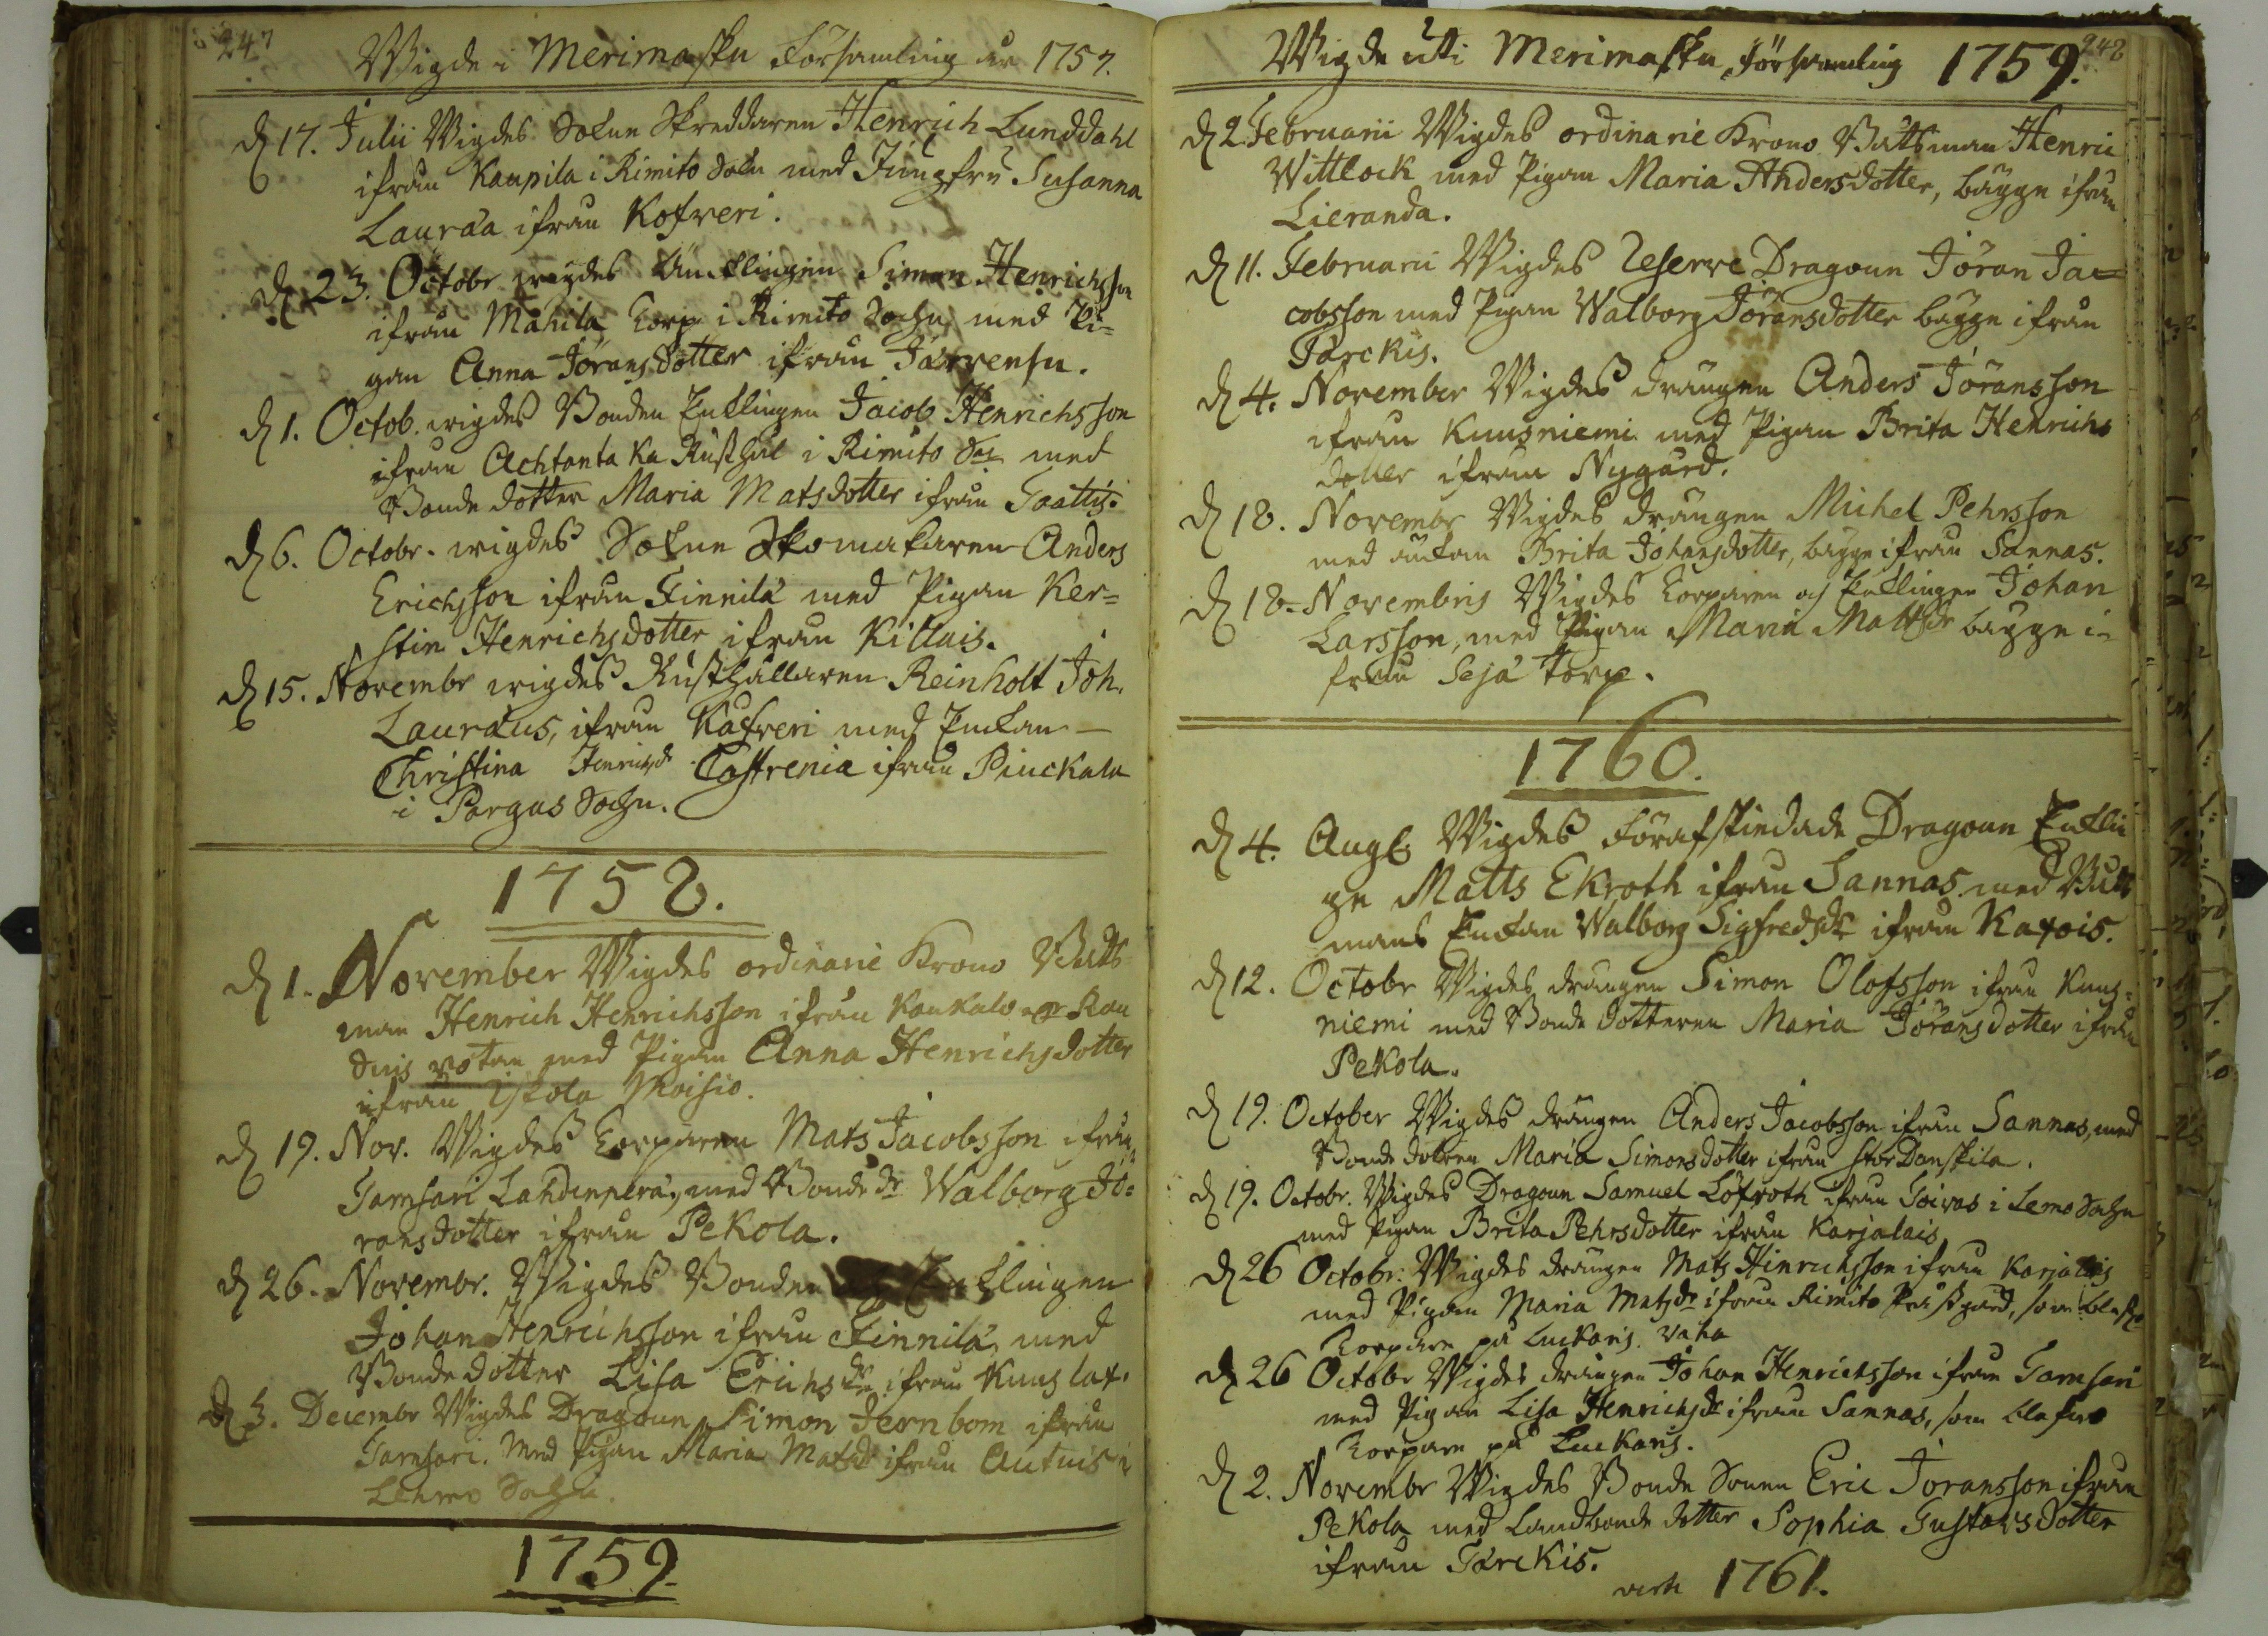 247
Wigde i Merimasku Församling år 1757.
d 17. Julii Wigdes Sokne Skreddaren Henrich Lunddahl
ifrån Kaupila i Rimito Sokn med Jungfru Susanna
Lauræa ifrån Kofveri.
d 23. Octobr wigdes Ünklingen Simon Henrichsson
ifrån Mahila torp i Rimito Sochn med Pi=
gan Anna Jöransdotter ifrån Järvensu.
d 1. Octob. wigdes Bonden Enklingen Jacob Henrichsson
ifrån Achtanka Rusthål i Rimito Soc med
Bonde dotter Maria Matsdotter ifrån Taattis.
d 6. Octobr. wigdes Sokne Skomakaren Anders
Erichsson ifrån Finnilä med Pigan Ker=
stin Henrichsdotter ifrån Killais.
d 15. Novembr wigdes Rusthållaren Reinholt Joh.
Lauræus, ifrån Kåfveri med Enkan
Christina Henrichsdr Castrenia ifrån Piuckala
i Pargas Sochn.
1758.
d 1. November Wigdes ordinarie Krono Båts
man Henrich Henrichsson ifrån Kaukalo
rotan med Pigan Anna Henrichsdotter
ifrån Iskola Moisio.
d 19. Nov. Wigdes Torparen Mats Jacobsson ifrån
Tamsari Lahdenperä, med Bonde dr Walborg Jö=
ransdotter ifrån Pekola.
d 26. Novembr. Wigdes Bonden Enklingen
Johan Henrichsson ifrån Finnilä, med
Bonde dotter Lisa Erichsdr ifrån Kuuslax.
d 3. Decembr Wigdes Dragoun Simon Jernbom ifrån
Tamsari. Med Pigan Maria Matsdr ifrån Autuis i
Lemo Sochn.
1759
248
Wigde uti Merimasku Församling 1759.
d 2 Februarii Wigdes ordinarie Krono Båtsman Henric
Wittlock med Pigan Maria Andersdotter, bägge ifrån
Lieranda.
d 11. Februarii Wigdes Reserve Dragoun Jöran Ja=
cobsson med Pigan Walborg Jöransdotter bägge ifrån
Tärckis.
d 4. November Wigdes drängen Anders Jöransson
ifrån Kuusniemi med Pigan Brita Henrichs
dotter ifrån Nygård.
d 18. Novembr Wigdes drängen Michel Pehrsson
med änkan Brita Johansdotter, bägge ifrån Sannas.
d 18. Novembris Wigdes Torparen och Enklingen Johan
Larsson, med Pigan Maria Mattsdr bägge i=
från Sejä torp.
1760.
d 4. Aug Wigdes Förafskiedade Dragoun Enklin
ge Matts Ekroth ifrån Sannas med Båts
mans Enkan Walborg Sigfredsdr ifrån Kaxois.
d 12. Octobr Wigdes drängen Simon Olofsson ifrån Kuus=
niemi med Bonde dotteren Maria Jöransdotter ifrån
Pekola.
d 19. October Wigdes drängen Anders Jacobsson ifrån Sannas, med
Bonde dotren Maria Simonsdotter ifrån Stor Danskila.
d 19. Octobr. Wigdes Dragoun Samuel Löfroth ifrån Toivas i Lemo Sochn
med Pigan Brita Pehrsdotter ifrån Karjalais
d 26 Octobr. Wigdes drängen Mats Hinrichsson ifrån Karjalais
med Pigan Maria Matsdr ifrån Rimito Prästgård, som blefwo
Torpare på Luckaris. vaha
d 26 Octobr Wigdes drängen Johan Henrichsson ifrån Tamsari
med Pigan Lisa Henrichsdr ifrån Sannas, som blefwo
Torpare på Luckaris.
d 2. Novembr Wigdes Bonde Sonen Eric Jöransson ifrån
Pekola med Landbonde dotter Sophia Gustavsdotter
ifrån Tärckis.
1761.